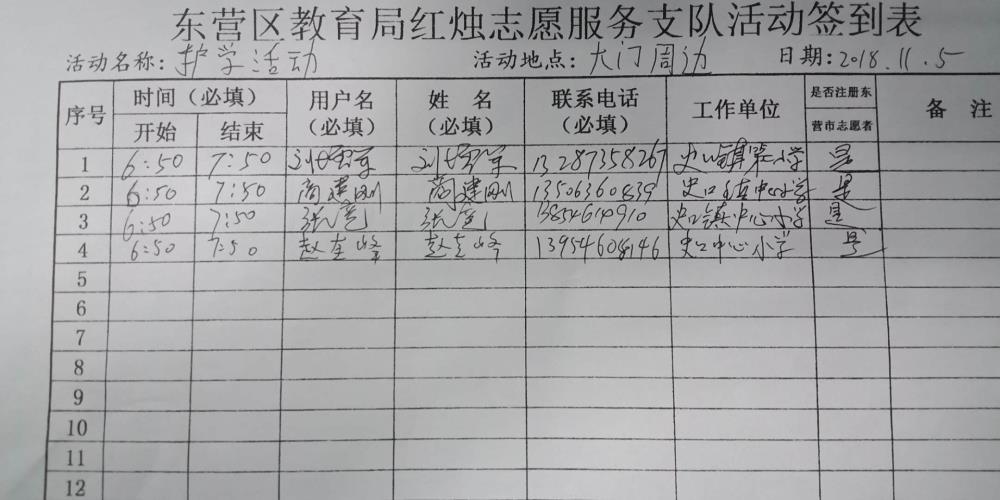 东营区教育局红烛志愿服务支队活动签到表
活动名称: 护学活动 活动地点: 大门周边 日期: 2018.11.5
序号 时间（必填） 用户名（必填） 姓名（必填） 联系电话（必填） 工作单位 是否注册东营市志愿者 备注
开始 结束
1 6:50 7:50 13287358267 史口镇 小学 是
2 6:50 7:50 尚建刚 尚建刚 13506360839 史口镇中心小学 是
3 6:50 7:50 张 张 13854614910 史口镇中心小学 是
4 6:50 7:50 赵奎峰 赵奎峰 13954608146 史口中心小学 是
5
6
7
8
9
10
11
12